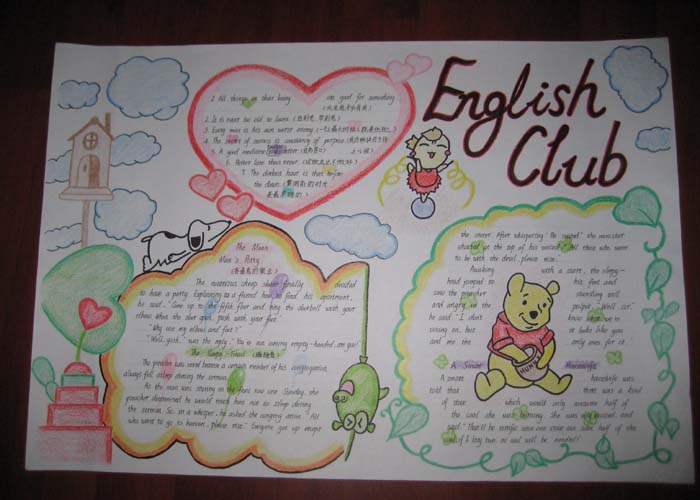 English
Club
2. All things in their being are good for something
2. It is never too old to learn
3. Every man is his own worst enemy
4. The secret of success is constancy of purpose
5. A good medicine bitter
6. Better late than never
7. The darkest hour is that before
the dawn
The Mean
Man's Party
The notorious cheap skate finally decided
to have a party. Explaining to a friend how to find his apartment,
he said, "Come up to the fifth floor and ring the doorbell with your
elbow. When the door open, push with your foot."
"Why use my elbow and foot?"
"Well, gosh," was the reply, "You're not coming empty-handed, are you?"
The Sleepy-Head
The preacher was vexed because a certain member of his congregation
always fell asleep during the sermon.
As the man was snoring in the front row one Sunday, the
preacher determined he would teach him not to sleep during
the sermon. So, in a whisper, he asked the congregation. "All
who want to go to heaven, please rise." Everyone got up except
the snorer. After whispering "Be seated," the minister
shouted at the top of his voice, "All those who want
to be with the devil, please rise."
Awaking with a start, the sleepy-
head jumped to his feet and
saw the preacher standing tall
and angry in the pulpit. "Well sir,"
he said, "I don't know what we're
voting on, but it looks like you
and me the only ones for it.
A Smart Housewife
A smart housewife was
told that there was a kind
of stove which would only consume half of
the coal she was burning. She was very excited, and
said "That'll be terrific. Since one stove can save half of the
coal, if I buy two, no coal will be needed!"
HUNNY